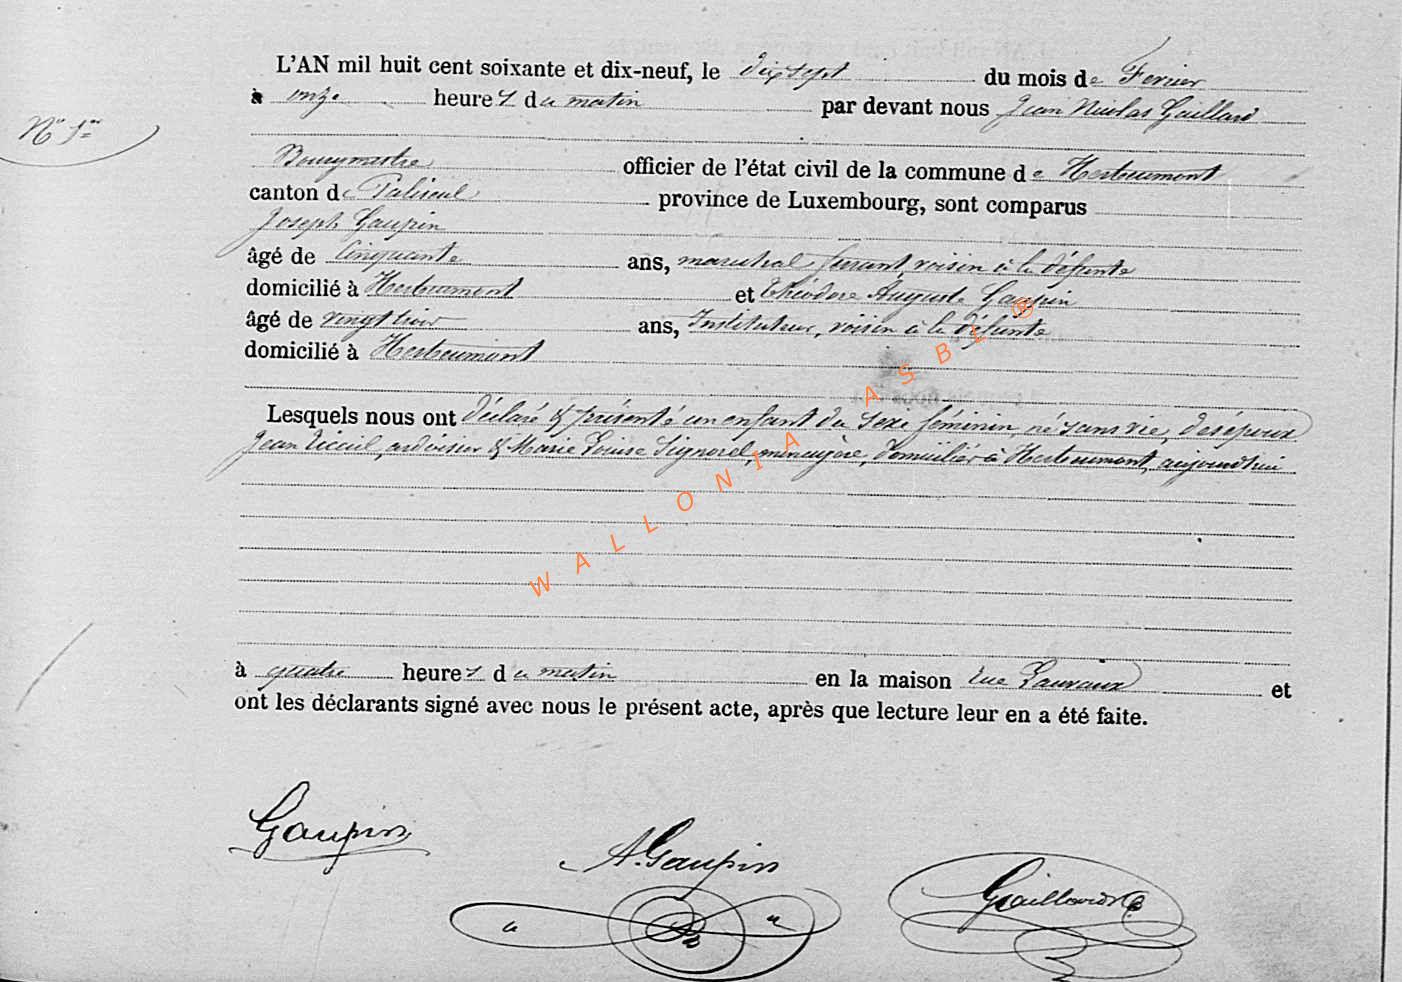 L'AN mil huit cent soixante et dix-neuf, le dix sept du mois de Fevrier
à onze heures du matin par devant nous Jean Nicolas Gaillard
N° 1er
Bourgmestre officier de l'état civil de la commune de Herbeumont
canton de Paliseul province de Luxembourg, sont comparus
Joseph Gaupin
âgé de Cinquante ans, maréchal ferrant, voisin à la défunte
domicilié à Herbeumont et Théodore Auguste Gaupin
âgé de vingt trois ans, Instituteur, voisin à la défunte
domicilié à Herbeumont
Lesquels nous ont déclaré & présenté un enfant du sexe féminin, né sans vie, des époux
Jean ardoisier & Marie Louise Signorel, ménagère, domiciliés à Herbeumont, aujourd'hui
à quatre heures du matin en la maison rue et
ont les déclarants signé avec nous le présent acte, après que lecture leur en a été faite.
Gaupin
A. Gaupin
Gaillard
WALLONIA ASBL ®